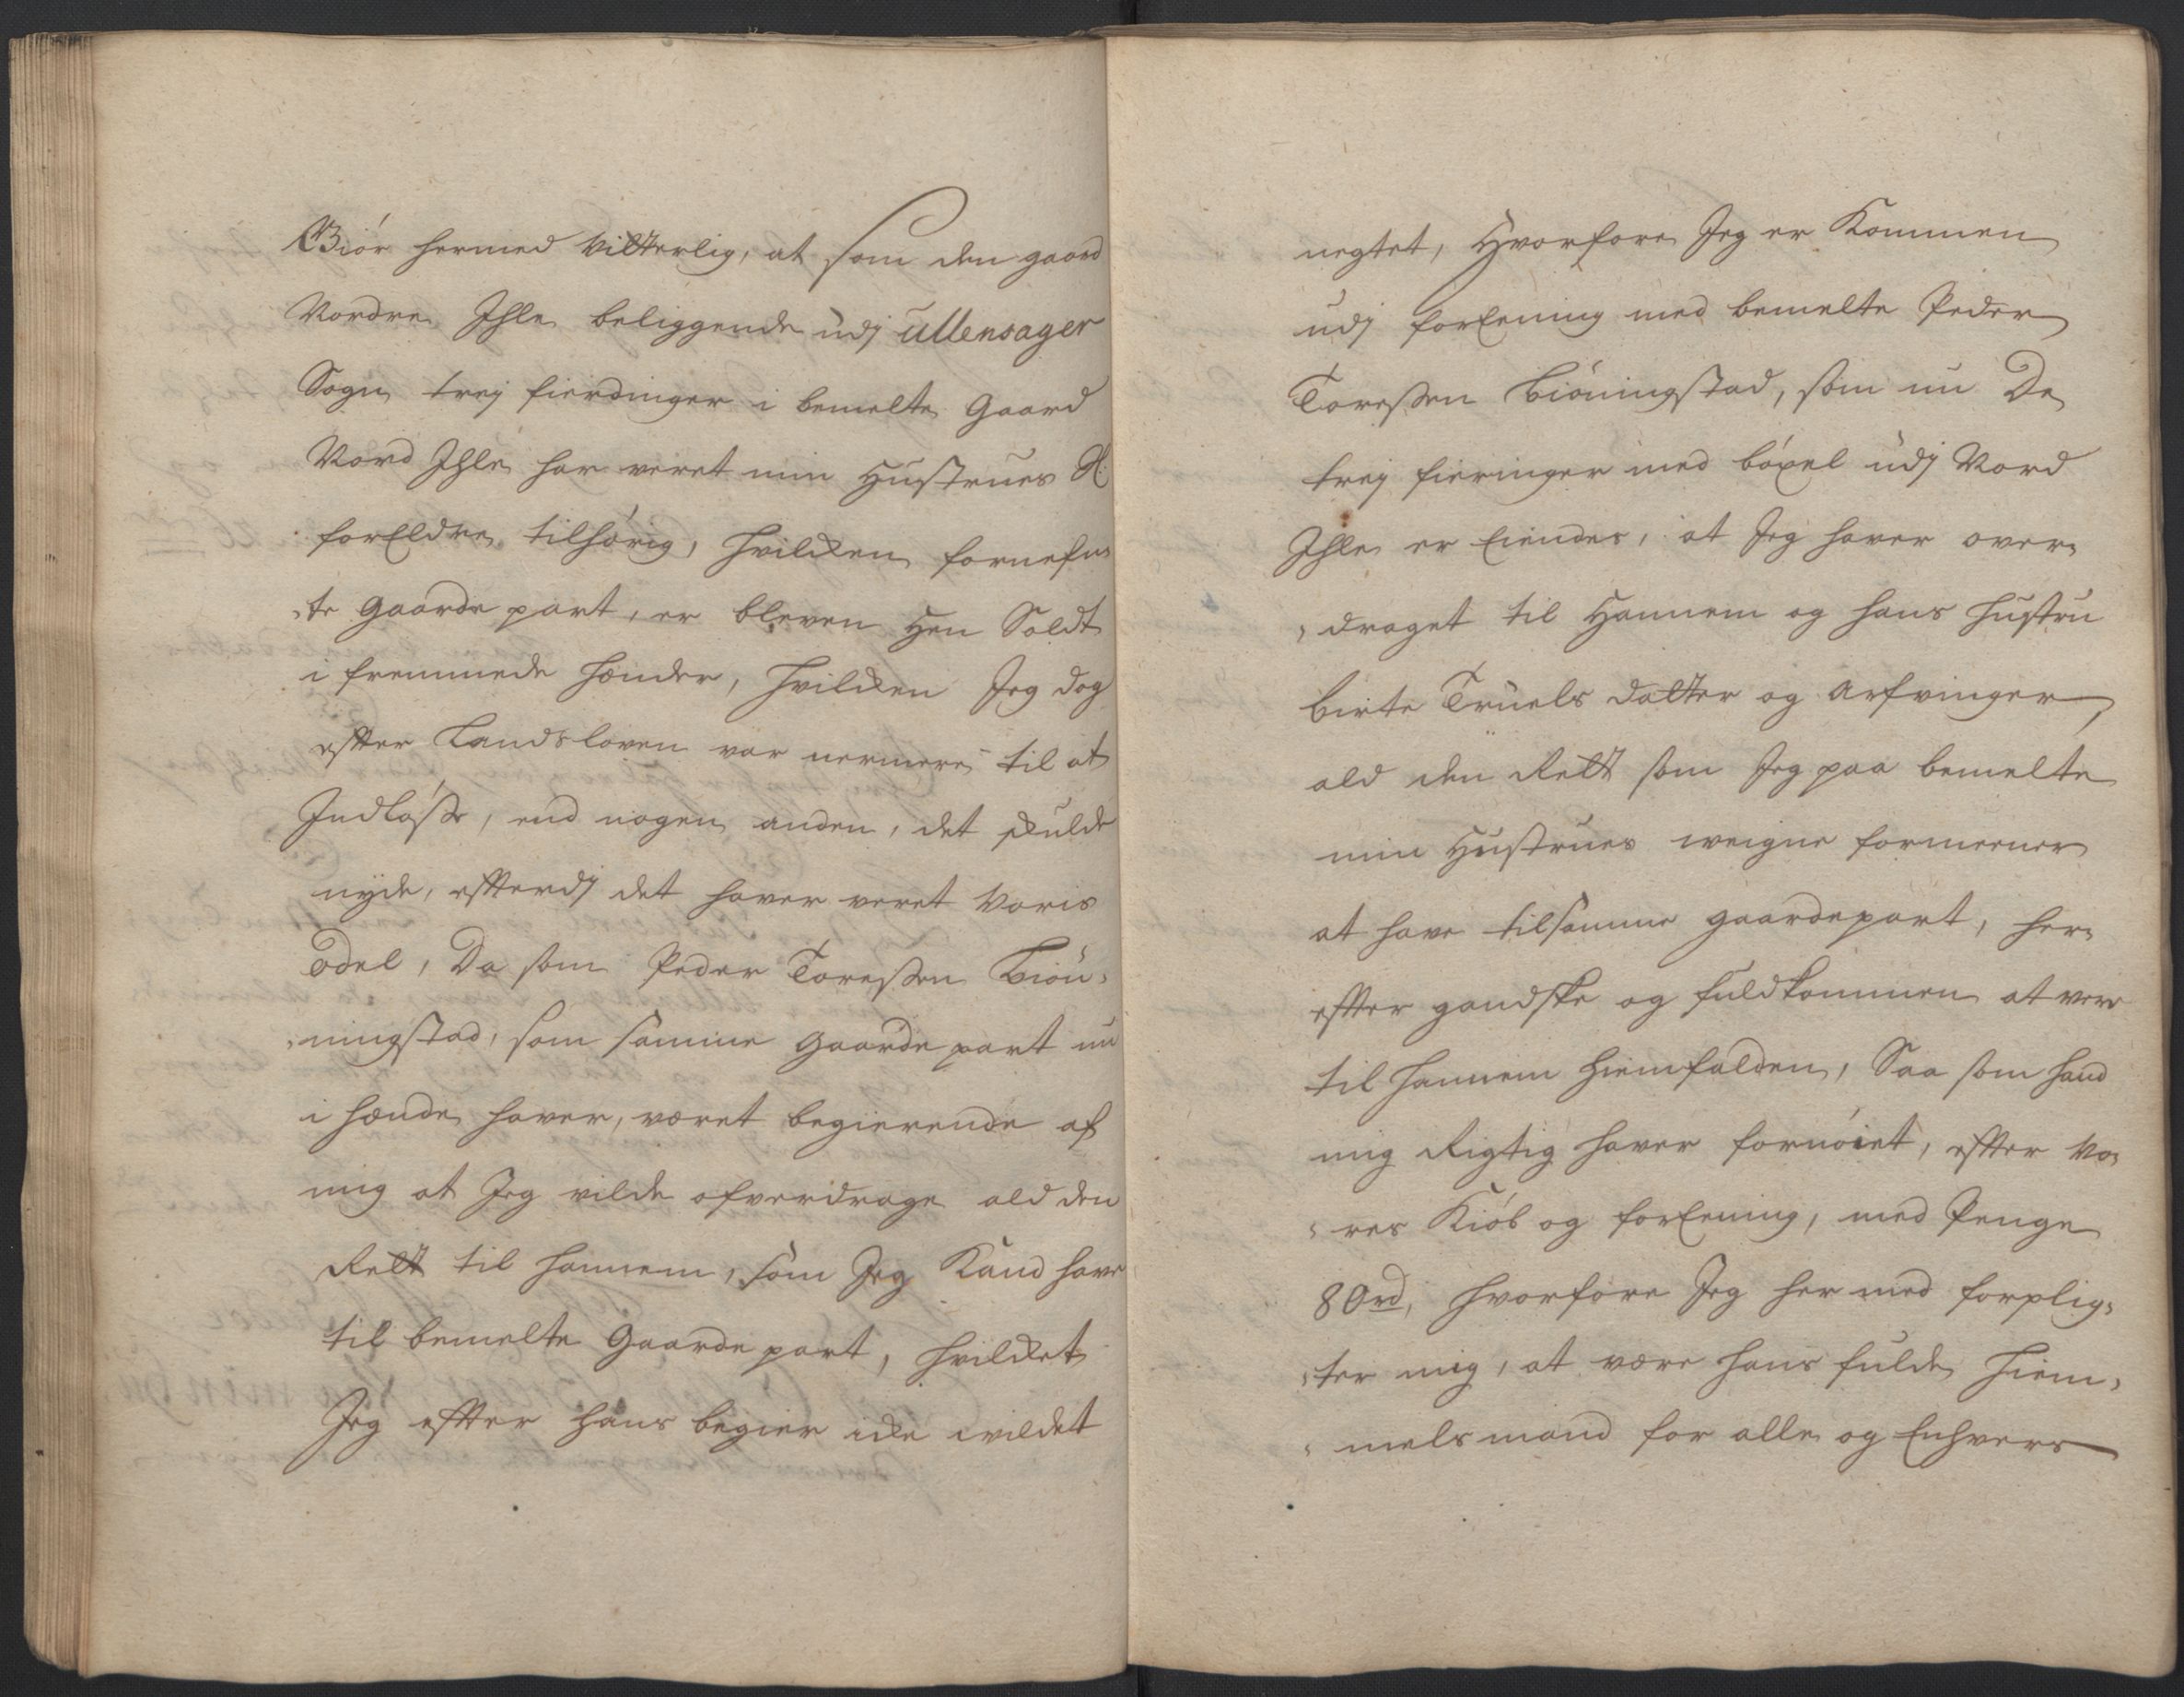 Giör hermed Vitterlig, at som den gaard
Nordre Ihle beliggende udj Ullensager
Sogn trej fierdinger i bemelte Gaard
Nord Ihle har veret min Hustrues S:
forEldre tilhörig, hvilcken fornefn
,te Gaarde part, er bleven hen Soldt
i fremmede hænder, hvilcken Jeg dog
effter Landsloven var nermere til at
Indlösse, end nogen anden, det skulde
nyde, effterdj det haver veret Voris
Odel, Da som Peder Toressen Biön,
,ningstad, som samme Gaarde part nu
i hænde haver, været begierende af
mig at Jeg vilde ofverdrage ald den
Rett til hannem, som Jeg Kand have
til bemelte Gaarde part, hvilcket
Jeg effter hans begier icke wildet
negtet, Hvorfore Jeg er Kommen
udj forEening med bemelte Peder
Toressen Biöningstad, som nu De
trej fieringer med böxel udj Nord
Ihle er Eiendes, at Jeg haver over,
,draget til Hannem og hans hustru
Birte Truels datter og Arfvinger,
ald den Rett som Jeg paa bemelte
min Hustrues weigne formeener
at have tilsamme gaardepart, her,
effter gandske og fuldkommen at vere
til hannem hiemfalden, Saa som hand
mig Rigtig haver fornöiet, effter Vo,
,res Kiöb og forEening, med Penge
80 rd, hvorfore Jeg her med forplig,
,ter mig, at være hans fulde hiem,
,mels mand for alle og Enhvers